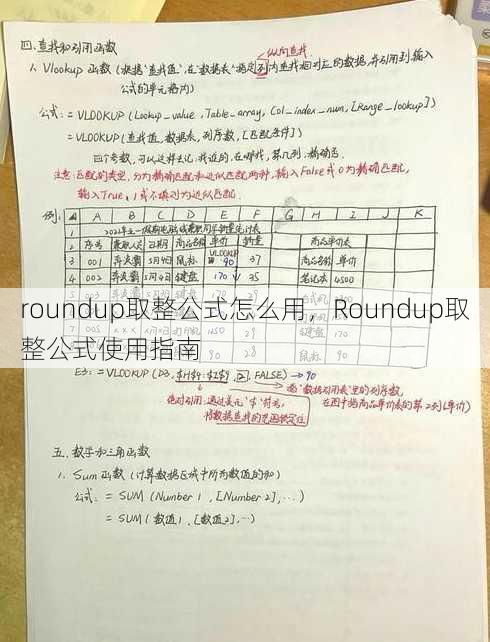 四、查找和引用函数
纵向查找
1、Vlookup 函数（根据"查找值"，在"数据表"指定列内查找相对应的数据，并引用到输入
公式的单元格内）
公式：= VLOOKUP (Lookup_value, Table_array, Col_index_num, [Range_lookup])
= VLOOKUP（查找值，数据表，列序数，[匹配条件]）
四个参数，可以这样去记：我找的，在哪找，第几列，精确否.
注意：匹配的类型，分为精确匹配和近似匹配两种，输入False或0为精确匹配，
输入True、1或不填时为近似匹配.
例：
A B C D E F G H I J K
1 2021年五一假期电脑城兼职
2 序号 兼职人 日期 商品名称 单价 销量 商品单价表
3 001 5月4日 鼠标 VLOOKUP 90 37 商品名称 单价
4 002 5月4日 键盘 170 35 笔记本 4500
roundup取整公式怎么用，Roundup取
整公式使用指南
键盘 170
90 28 鼠标 90
E3: = VLOOKUP (D3, $H$4:$I$9, 2, FALSE) → 90
绝对引用：通过美元"$"符号，
将数据查找的范围锁定住
是"数据引用表"里的列序数，
在图中指商品单价表的第2列(单价)
五、数学和三角函数
1、Sum函数（计算数据区域中所有数值的和）
公式：= SUM (Number1, [Number2], ...)
= SUM（数值1，[数值2]，...）